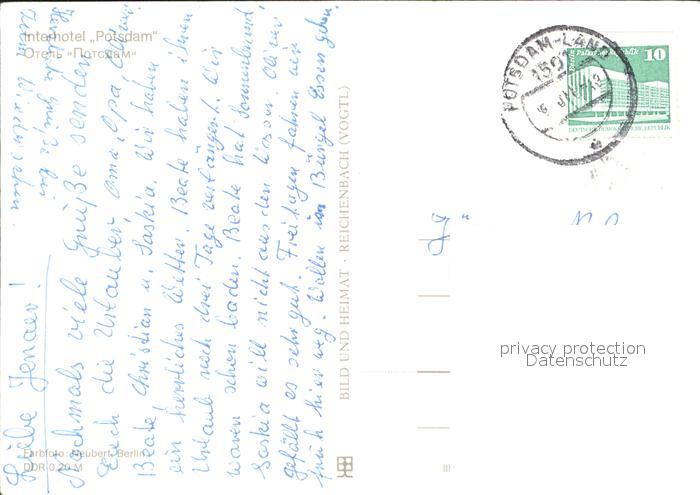 Interhotel „Potsdam"
Отель «Потсдам»
Liebe Jenaer!
Nochmals viele Grüße senden
Euch die Urlauber Oma, Opa,
Beate, Christian u. Saskia. Wir haben
ein herrliches Wetter. Beate haben ihren
Urlaub noch drei Tage verlängert. Wir
waren schon baden. Beate hat Sonnenbrand.
Saskia will nicht aus den Wasser.
gefällt es sehr gut. Freitag fahren wir
früh hier weg. Wollen in Bürgel Essen gehen.
Herzliche Grüße
Auf Wiedersehen
Farbfoto: Neubert, Berlin
DDR 0,20 M
BILD UND HEIMAT · REICHENBACH (VOGTL)
III
POTSDAM-LAND
10
DEUTSCHE DEMOKRATISCHE REPUBLIK
privacy protection
Datenschutz